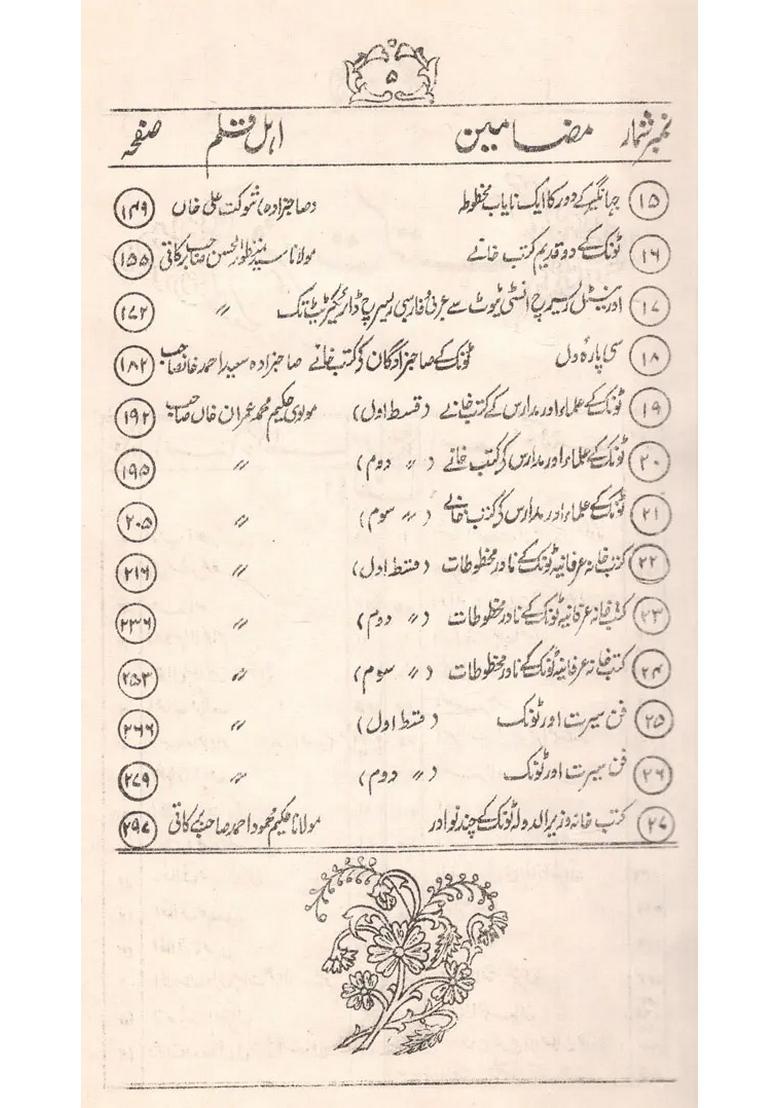 ۵
نمبر شمار مضامین اہل قلم صفحہ
۱۵ جہانگیر کے دور کا ایک نایاب مخطوطہ (صاحبزادہ) شوکت علی خاں ۱۴۹
۱۶ ٹونک کے دو قدیم کتب خانے مولانا سید منظور الحسن صاحب برکاتی ۱۵۵
۱۷ اورینٹل ریسرچ انسٹی ٹیوٹ سے عربی و فارسی ریسرچ ڈائرکٹریٹ تک 〃 ۱۷۲
۱۸ سی پارۂ دل ٹونک کے صاحبزادگان کے کتب خانے صاحبزادہ سعید احمد خاں صاحب ۱۸۲
۱۹ ٹونک کے علماء اور مدارس کے کتب خانے (قسط اول) مولوی حکیم محمد عمران خاں صاحب ۱۹۲
۲۰ ٹونک کے علماء اور مدارس کے کتب خانے (〃 دوم) 〃 ۱۹۵
۲۱ ٹونک کے علماء اور مدارس کے کتب خانے (〃 سوم) 〃 ۲۰۵
۲۲ کتب خانہ عرفانیہ ٹونک کے نادر مخطوطات (قسط اول) 〃 ۲۱۶
۲۳ کتب خانہ عرفانیہ ٹونک کے نادر مخطوطات (〃 دوم) 〃 ۲۳۶
۲۴ کتب خانہ عرفانیہ ٹونک کے نادر مخطوطات (〃 سوم) 〃 ۲۵۳
۲۵ فن سیرت اور ٹونک (قسط اول) 〃 ۲۶۶
۲۶ فن سیرت اور ٹونک (〃 دوم) 〃 ۲۷۹
۲۷ کتب خانہ وزیر الدولہ ٹونک کے چند نوادر مولانا حکیم محمود احمد صاحب برکاتی ۲۹۷